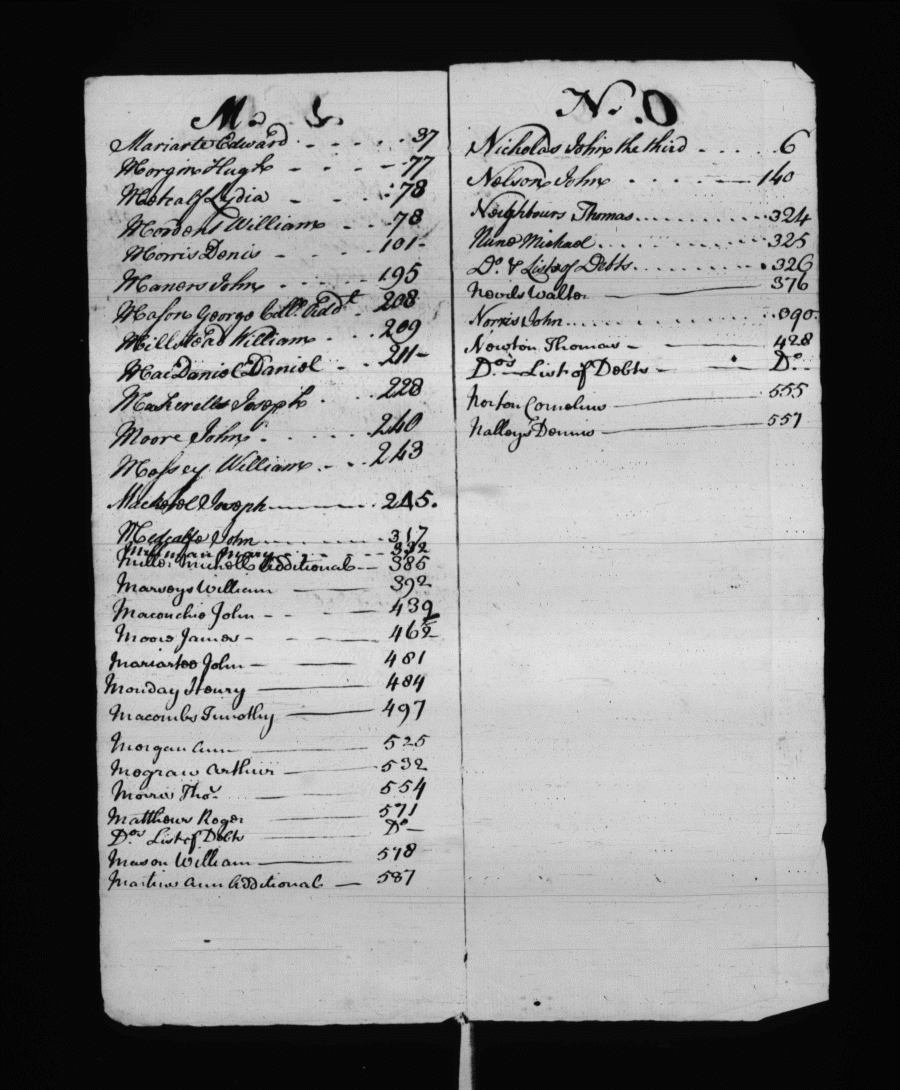 M.
Mariarte Edward 37
Morgin Hugh 77
Metcalf Lydia 78
Mordent William 78
Morris Denis 101
Maners John 195
Mason George Addt 208
Millstead William 209
MacDaniel Daniel 211
Makerells Joseph 228
Moore John 240
Massey William 243
Mackerel Joseph 245.
Metcalfe John 317
Mary 332
Miller Michell Additional 385
Marveys William 392
Maconchie John 439
Moore James 462
Mariartee John 481
Monday Henry 484
Macombs Timothy 497
Morgan Ann 525
Mograw Arthur 532
Morris Thos 554
Matthews Roger 571
Dos List of Debts Do
Mason William 578
Martins Ann Additional 587
N. O
Nicholas John the third 6
Nelson John 140
Neighbours Thomas 324
Nune Michael 325
Do & List of Debts 326
Nevils Walter 376
Norris John 390.
Newton Thomas 428
Dos List of Debts Do
Norton Cornelius 555
Nalleys Dennis 557